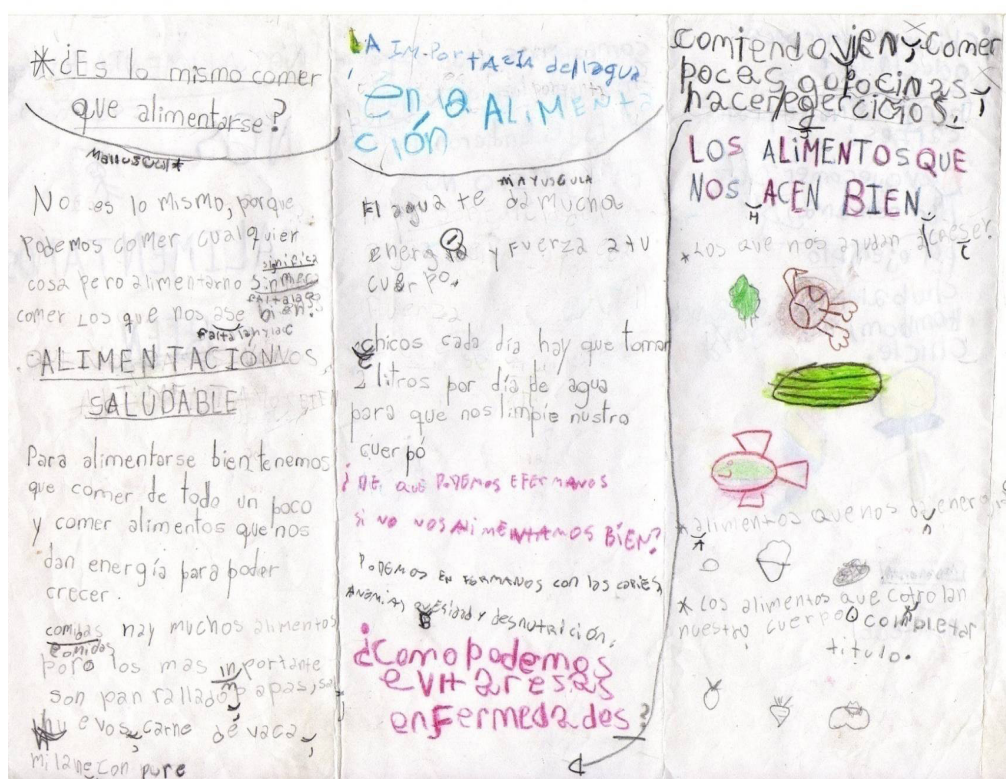 *¿Es lo mismo comer
que alimentarse?
No es lo mismo, porque
Podemos comer cualquier
significa
cosa pero alimentarno
comer Los que nos ase bien.
ALIMENTACIÓN
SALUDABLE
Para alimentarse bien tenemos
que comer de todo un poco
y comer alimentos que nos
dan energía para poder
crecer.
comidas hay muchos alimentos
comidas
pero los mas inportante
m
son pan rallado, papas,
huevos, carne de vaca,
milane con pure
LA IMPORTACIA del lagua
en la ALIMENTA
CIÓN
MAYUSCULA
El agua te da mucha
energia y Fuerza a tu
cuerpo.
chicos cada día hay que tomar
2 litros por día de agua
para que nos limpie nustro
cuerpó
¿DE QUÉ PODEMOS EFERMANOS
SI NO NOS ALIMENTAMOS BIEN?
PODEMOS ENFERMANOS CON las caries,
Anemias, y desnutrición.
¿Como podemos
evitar esas
enfermedades?
comiendo vien y comer
pocas golocinas y
hacer egercicios.
j
LOS ALIMENTOS QUE
NOS ACEN BIEN.
H
*Los que nos ayudan a creser.
c
*alimentos que nos energi
A
* Los alimentos que cotrolan
nuestro cuerpo completar
titulo.